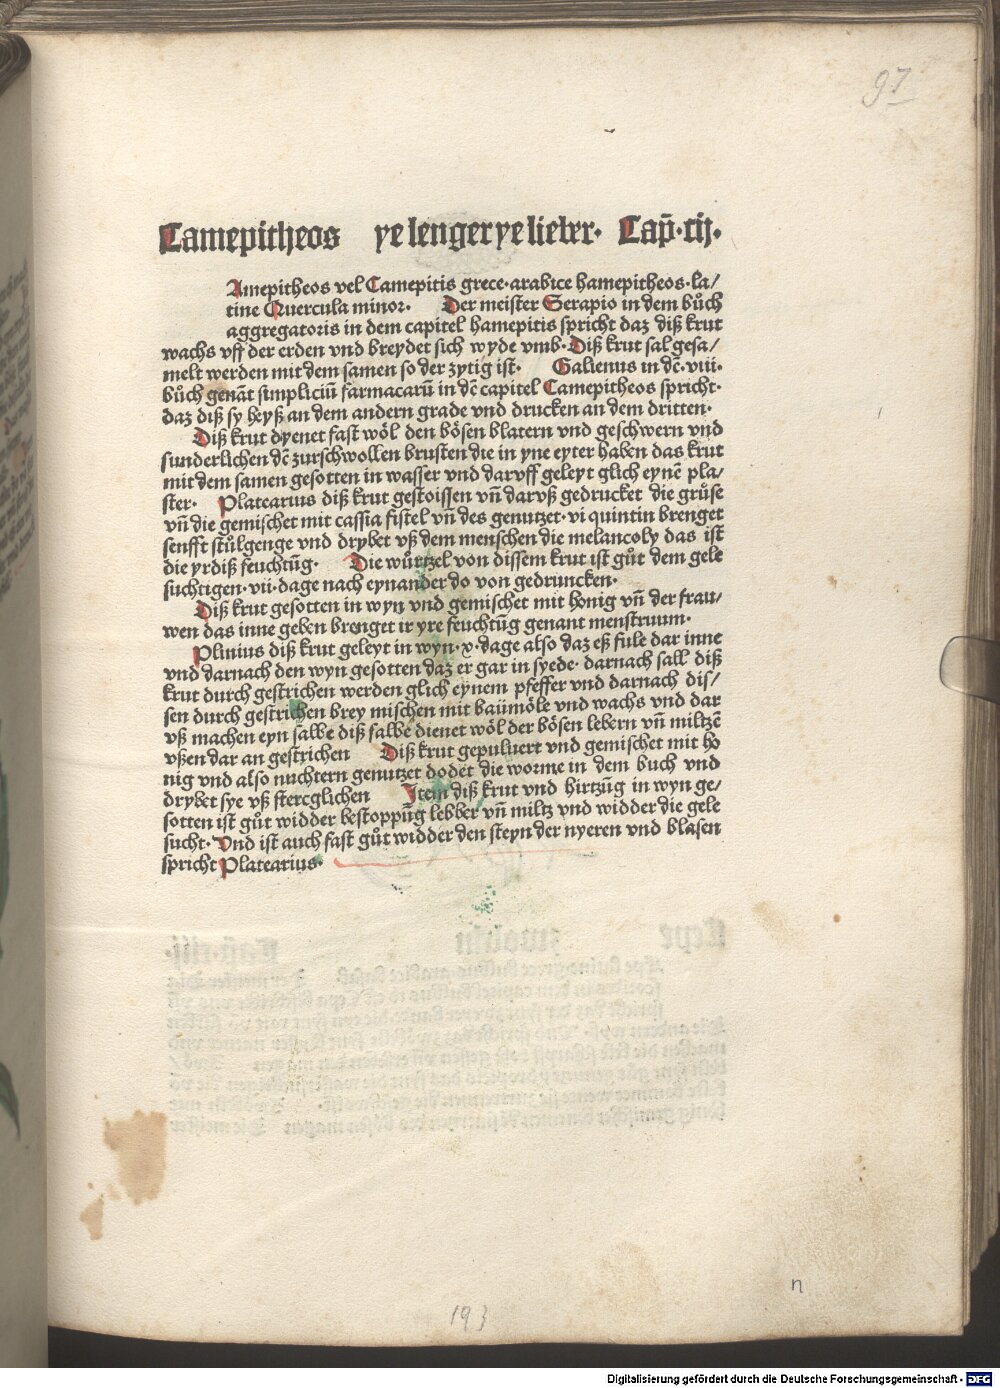 97
Camepitheos ye lenger ye lieber· Cap̄·cij·
Amepitheos vel Camepitis grece·arabice hamepitheos·la/
tine Quercula minor· Der meister Serapio in dem bůch
aggregatoris in dem capitel hamepitis spricht daz diß krut
wachs vff der erden vnd breydet sich wyde vmb·Diß krut sal gesa/
melt werden mit dem samen so der zytig ist· Galienus in dē·viii·
bůch genāt simpliciū farmacarū in dē capitel Camepitheos spricht·
daz diß sy heyß an dem andern grade vnd drucken an dem dritten·
Diß krut dyenet fast wöl den bösen blatern vnd geschwern vnd
sunderlichen dē zurschwollen brusten die in yne eyter haben das krut
mit dem samen gesotten in wasser vnd darvff geleyt glich eynē pla-
ster· Platearius diß krut gestoissen vn̄ darvß gedrucket die grůse
vn̄ die gemischet mit cassia fistel vn̄ des genutzet·vi quintin brenget
senfft stůlgenge vnd drybet vß dem menschen die melancoly das ist
die yrdiß feuchtūg· Die wůrtzel von dissem krut ist gůt dem gele
suchtigen·vii·dage nach eynander do von gedruncken·
Diß krut gesotten in wyn vnd gemischet mit honig vn̄ der frau/
wen das inne geben brenget ir yre feuchtūg genant menstruum·
Plinius diß krut geleyt in wyn·x·dage also daz eß fule dar inne
vnd darnach den wyn gesotten daz er gar in syede· darnach sall diß
krut durch gestrichen werden glich eynem pfeffer vnd darnach dis/
sen durch gestrichen brey mischen mit baümöle vnd wachs vnd dar
vß machen eyn salbe diß salbe dienet wöl der bösen lebern vn̄ miltzē
vßen dar an gestrichen Diß krut gepuluert vnd gemischet mit ho
nig vnd also nuchtern genutzet dodet die worme in dem buch vnd
drybet sye vß stercglichen Item diß krut vnd hirtzūg in wyn ge-
sotten ist gůt widder bestoppūg lebber vn̄ miltz vnd widder die gele
sucht·Vnd ist auch fast gůt widder den steyn der nyeren vnd blasen
spricht Platearius·
n
193
Digitalisierung gefördert durch die Deutsche Forschungsgemeinschaft - DFG